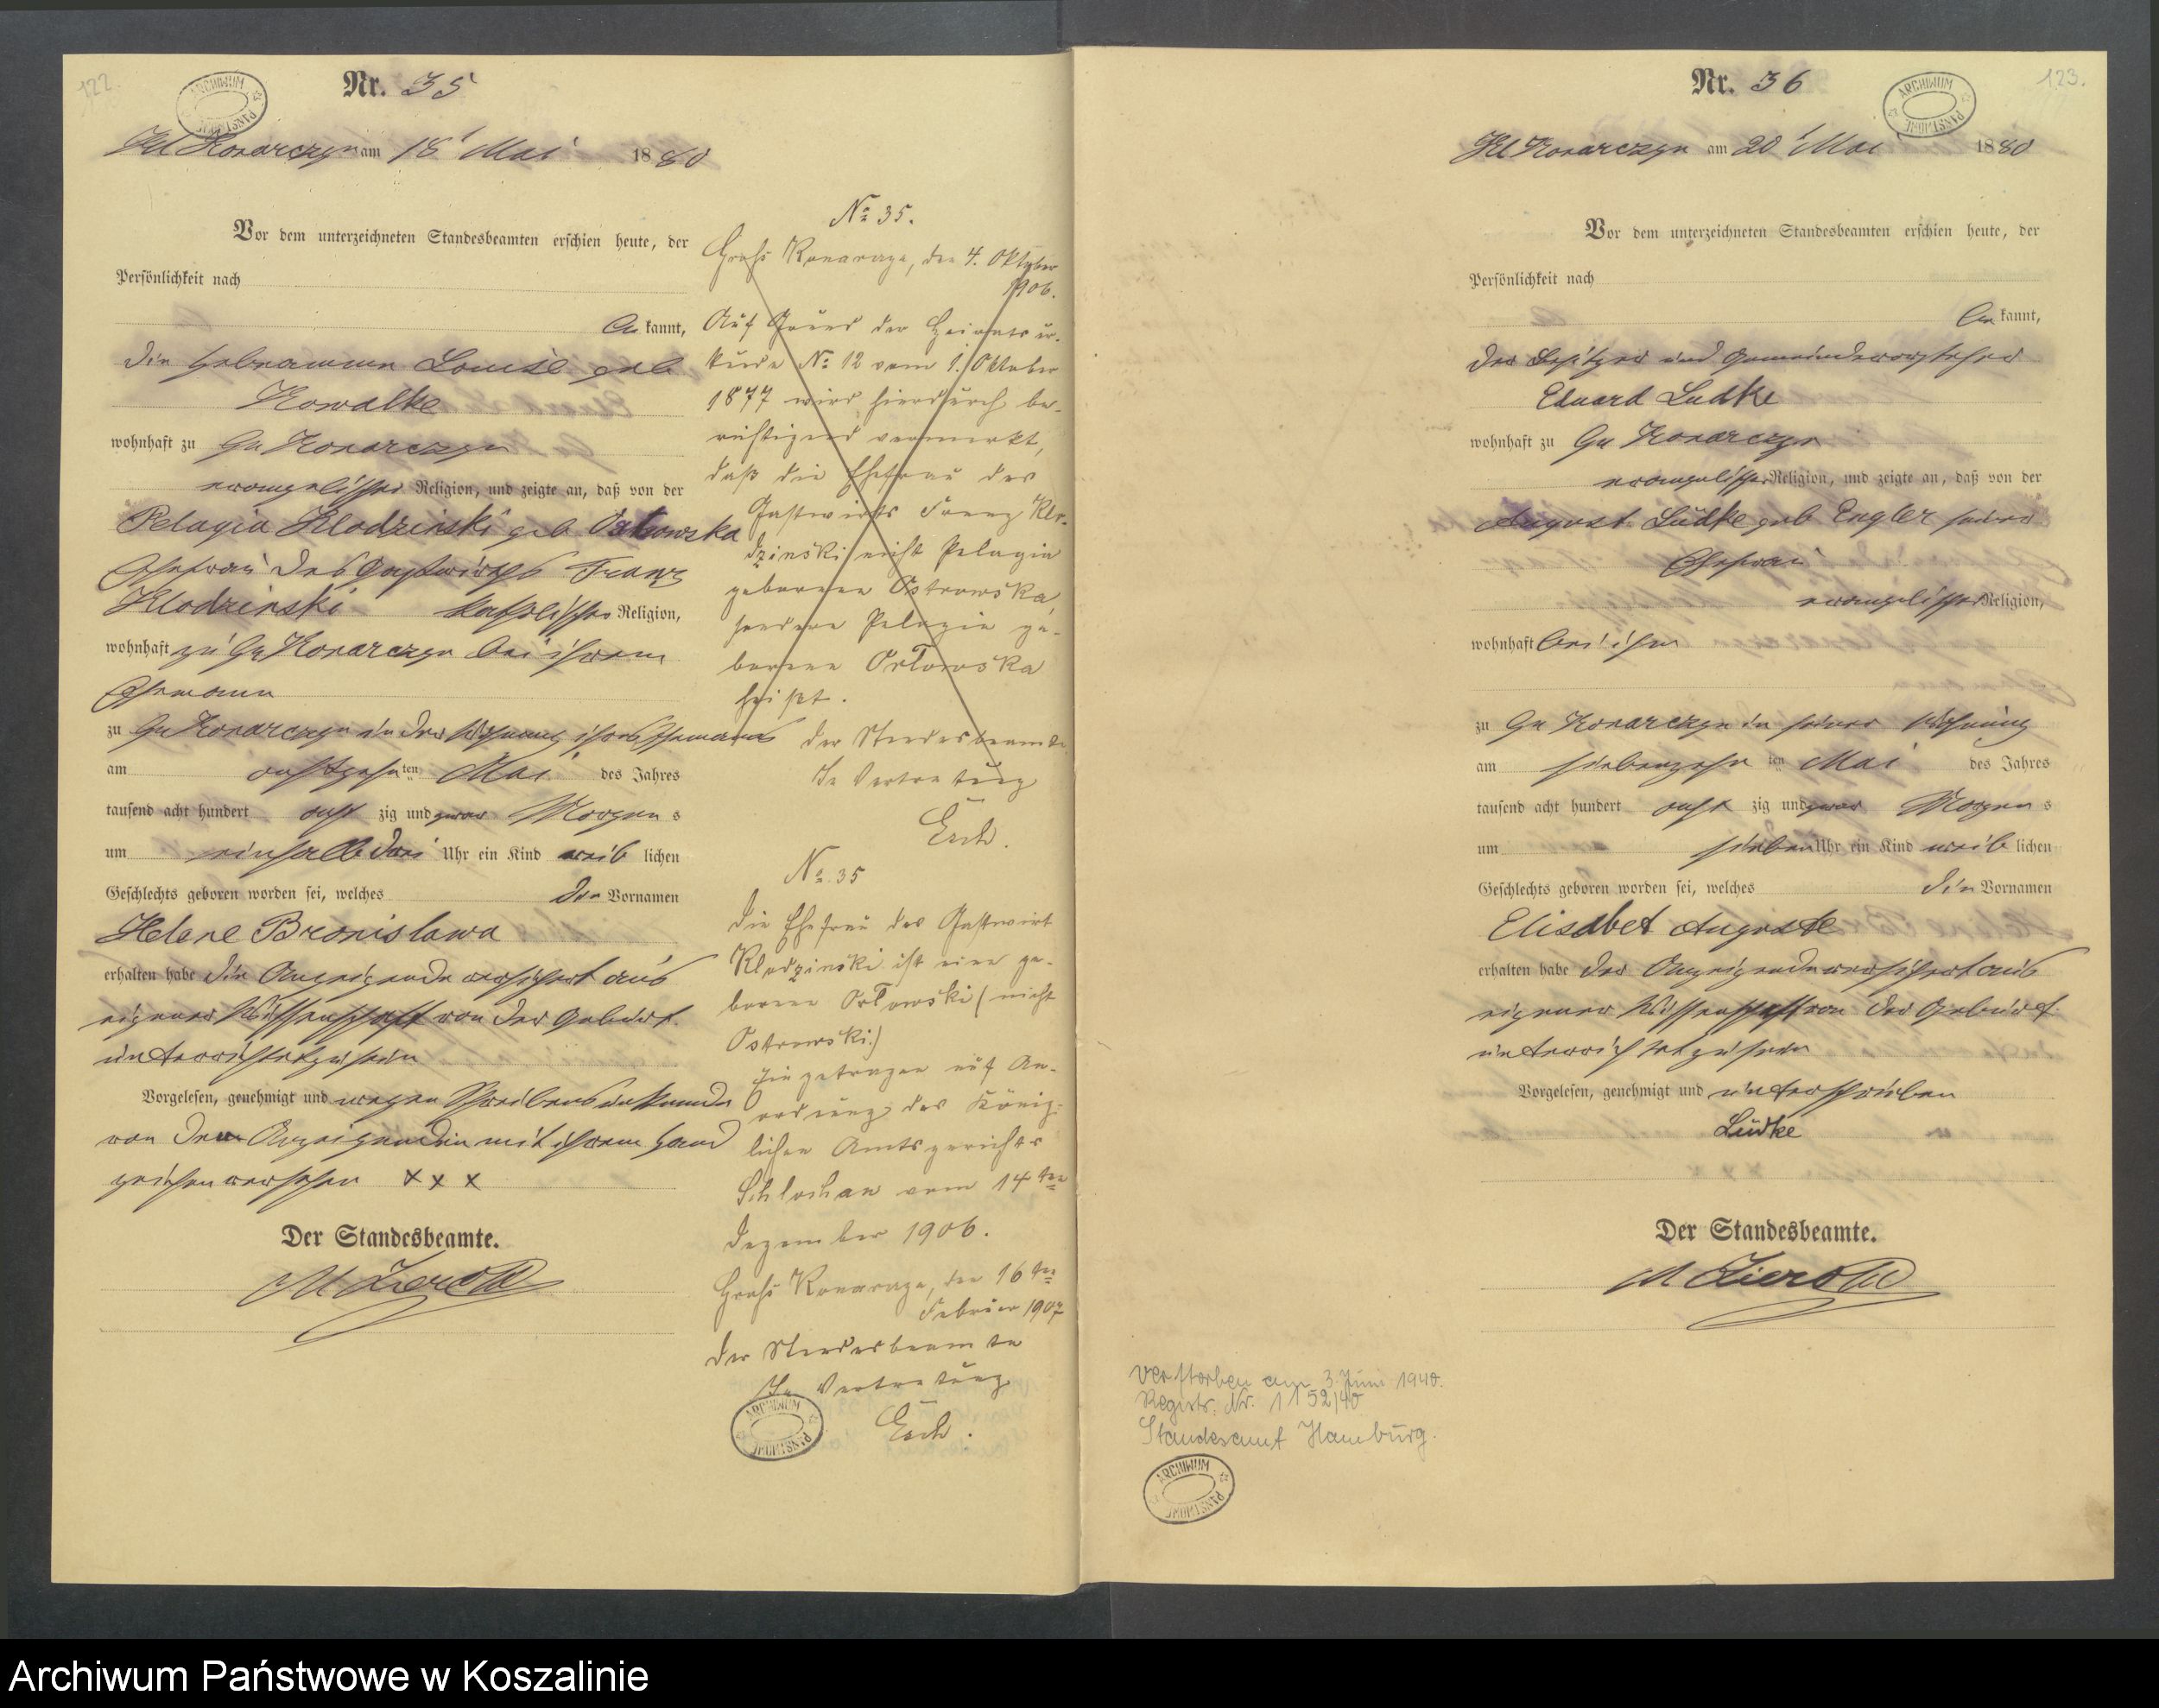 122.
ARCHIWUM PAŃSTWOWE
Nr. 35
Kl Konarczyn am 18 Mai 1880
Vor dem unterzeichneten Standesbeamten erschien heute, der
Persönlichkeit nach
be kannt,
die Hebeamme Louise geb
Kowalke
wohnhaft zu Gr Konarczyn
evangelischer Religion, und zeigte an, daß von der
Pelagia Klodzinski geb
Ehefrau des Gastwirths Franz
Klodzinski katholischer Religion,
wohnhaft zu Gr Konarczyn bei ihrem
Ehemann
zu Gr Konarczyn in der Wohnung ihres Ehemanns
am achtzehn ten Mai des Jahres
tausend acht hundert acht zig und zwar Morgen s
um einhalb drei Uhr ein Kind weib lichen
Geschlechts geboren worden sei, welches die Vornamen
Helene Bronislawa
erhalten habe die Anzeigende versichert aus
eigener Wissenschaft von der Geburt
unterrichtet zu sein
Vorgelesen, genehmigt und wegen Schreibensunkunde
von der Anzeigenden mit ihrem Hand
zeichen versehen x x x
Der Standesbeamte.
No 35.
Groß Konarczyn, den 4. Oktober
1906.
Auf Grund der Heiratsur-
kunde No 12 vom 1. Oktober
1877 wird hierdurch be-
richtigend vermerkt,
daß die Ehefrau des
Gastwirts Franz Klo-
dzinski nicht Pelagia
geborene Ostrowska,
sondern Pelagia ge-
borene Orłowska
heißt.
Der Standesbeamte
In Vertretung
No 35
Die Ehefrau des Gastwirt
Klodzinski ist eine ge-
borene Orłowski (nicht
Ostrowski.)
Eingetragen auf An-
ordnung des König-
lichen Amtsgerichts
Schlochau vom 14ten
Dezember 1906.
Groß Konarczyn, den 16ten
Februar 1907
Der Standesbeamte
In Vertretung
ARCHIWUM PAŃSTWOWE
123.
ARCHIWUM PAŃSTWOWE
Nr. 36
Kl Konarczyn am 20 Mai 1880
Vor dem unterzeichneten Standesbeamten erschien heute, der
Persönlichkeit nach
be kannt,
der Besitzer und Gemeindevorsteher
Eduard Ludtke
wohnhaft zu Gr Konarczyn
evangelischer Religion, und zeigte an, daß von der
August Lüdke geb Engler seiner
Ehefrau
evangelischer Religion,
wohnhaft bei ihm
zu Gr Konarczyn in seiner Wohnung
am siebenzehn ten Mai des Jahres
tausend acht hundert acht zig und zwar Morgen s
um sieben Uhr ein Kind weib lichen
Geschlechts geboren worden sei, welches die Vornamen
Elisabet Auguste
erhalten habe der Anzeigende versichert aus
eigener Wissenschaft von der Geburt
unterrichtet zu sein
Vorgelesen, genehmigt und unterschrieben
Lüdke
Der Standesbeamte.
verstorben am 3. Juni 1940.
Registr. Nr. 1152/40
Standesamt Hamburg.
ARCHIWUM PAŃSTWOWE
Archiwum Państwowe w Koszalinie